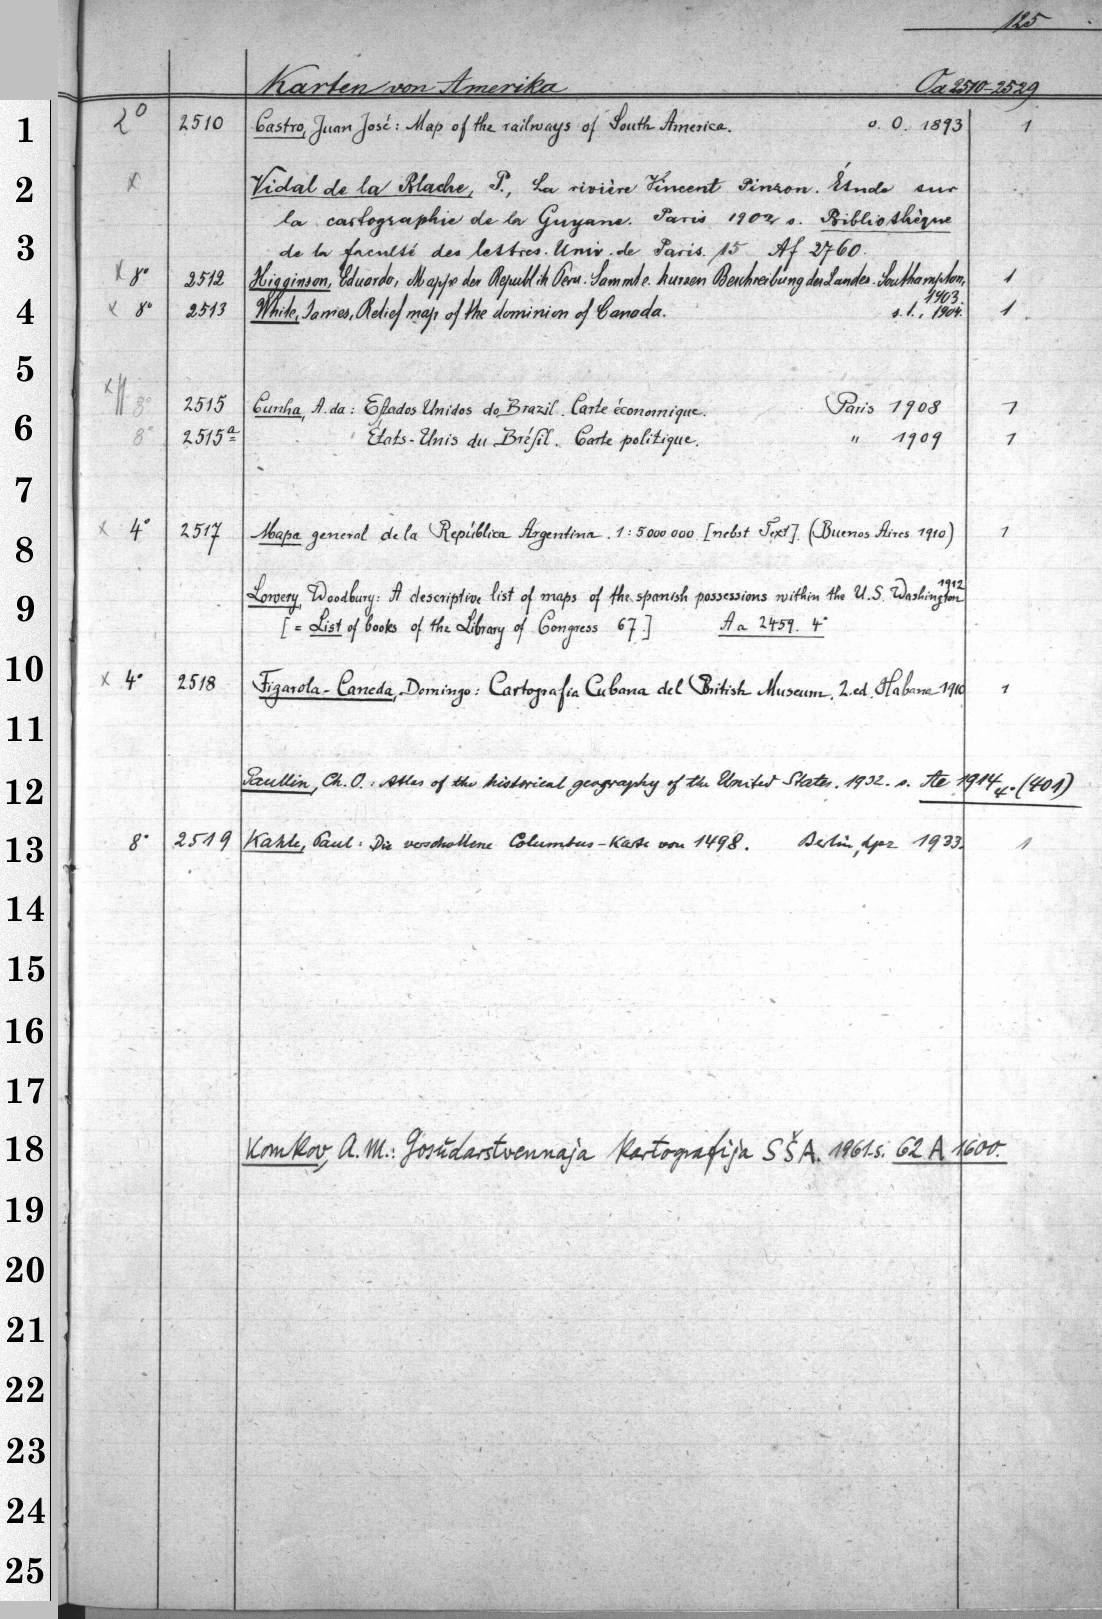 125
Karten von Amerika Oa 2510-2529
1 2° 2510 Castro, Juan José: Map of the railways of South America. o. O. 1893 1
2 x Vidal de la Blache, P., La rivière Vincent Pinzon. Étude sur
la cartographie de la Guyane. Paris 1902 s. Bibliothèque
3 de la faculté des lettres. Univ. de Paris. 15 Af 2760.
x 8° 2512 Higginson, Eduardo, Mappe der Republik Peru. Sammt e. kurzen Beschreibung des Landes. Southampton, 1903. 1
4 x 8° 2513 White, James, Relief map of the dominion of Canada. s. l., 1904. 1
5
x 8° 2515 Cunha, A. da: Estados Unidos do Brazil. Carte économique. Paris 1908 1
6 8° 2515a États-Unis du Brésil. Carte politique. " 1909 1
7
x 4° 2517 Mapa general de la República Argentina. 1:5000000 [nebst Text]. (Buenos Aires 1910) 1
8
Lowery, Woodbury: A descriptive list of maps of the spanish possessions within the U.S. Washington 1912
9 [= List of books of the Library of Congress 67.] Aa 2459. 4°
10 x 4° 2518 Figarola-Caneda, Domingo: Cartografia Cubana del British Museum. 2. ed. Habana 1910 1
11
12 Paullin, Ch. O.: Atlas of the historical geography of the United States. 1932. s. Ae 1914 4° (401)
13 8° 2519 Kahle, Paul: Die verschollene Columbus-Karte von 1498. Berlin, Lpz 1933. 1
14
15
16
17
18 Komkov, A. M.: Gosudarstvennaja kartografija SŠA. 1961. s. 62 A 1600.
19
20
21
22
23
24
25